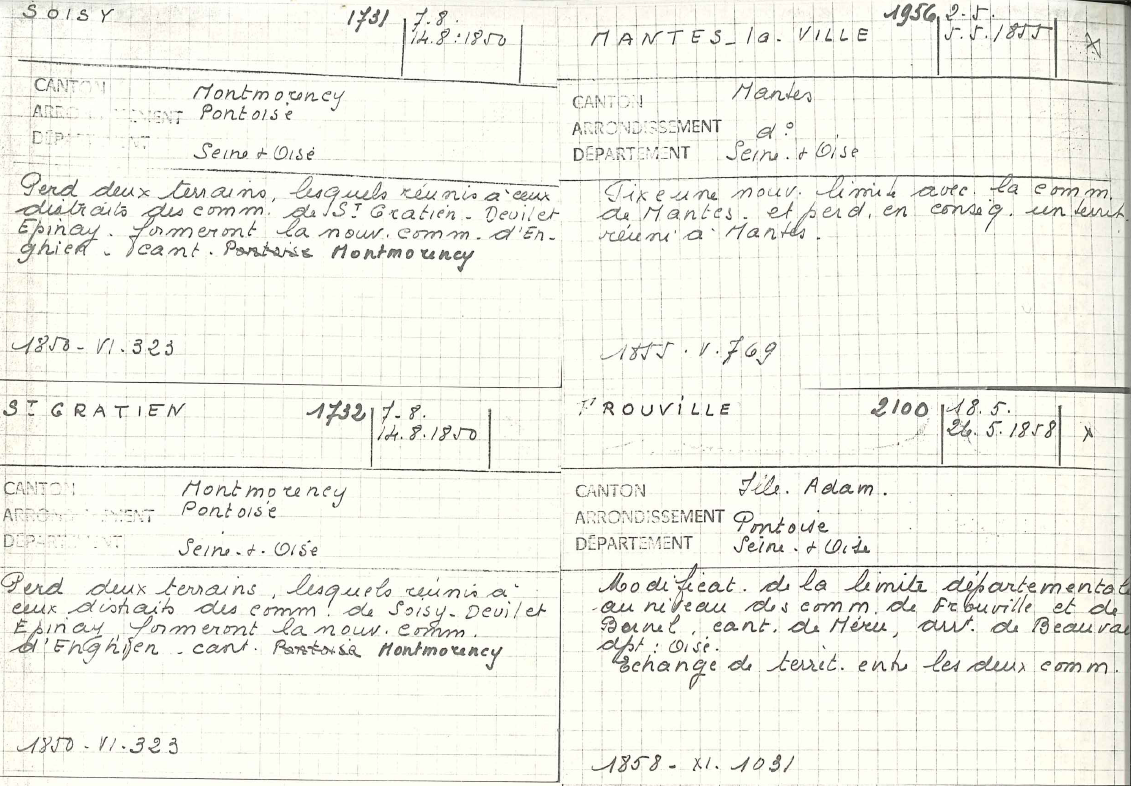 SOISY 1731 7.8.
14.8.1850
CANTON Montmorency
ARRONDISSEMENT Pontoise
DÉPARTEMENT Seine & Oise
Perd deux terrains, lesquels réunis à ceux
distraits des comm. de St Gratien - Deuil et
Epinay. formeront la nouv. comm. d'En-
ghien - cant. Pontoise Montmorency
1850 - VI. 323
MANTES-la-VILLE 1956 2.5.
5.5.1855 X
CANTON Mantes
ARRONDISSEMENT d°
DÉPARTEMENT Seine & Oise
Fixe une nouv. limite avec la comm.
de Mantes. et perd, en conséq. un territ.
réuni à Mantes.
1855 . V. 769
ST GRATIEN 1732 7.8.
14.8.1850
CANTON Montmorency
ARRONDISSEMENT Pontoise
DÉPARTEMENT Seine & Oise
Perd deux terrains, lesquels réunis à
ceux distraits des comm. de Soisy - Deuil et
Epinay, formeront la nouv. comm.
d'Enghien - cant. Pontoise Montmorency
1850 - VI. 323
FROUVILLE 2100 18.5.
26.5.1858 X
CANTON Isle. Adam.
ARRONDISSEMENT Pontoise
DÉPARTEMENT Seine & Oise
Modificat. de la limite départementale
au niveau des comm. de Frouville et de
Bornel, cant. de Méru, arr. de Beauvais
dpt : Oise.
Echange de territ. entre les deux comm.
1858 - XI. 1031